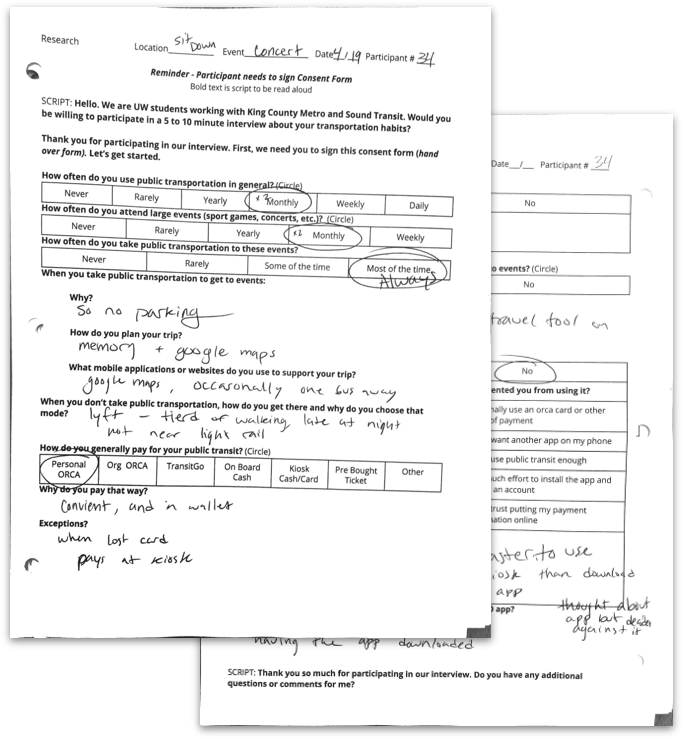 Research
Location sit Down Event Concert Date 4/19 Participant # 34
Reminder - Participant needs to sign Consent Form
Bold text is script to be read aloud
SCRIPT: Hello. We are UW students working with King County Metro and Sound Transit. Would you
be willing to participate in a 5 to 10 minute interview about your transportation habits?
Thank you for participating in our interview. First, we need you to sign this consent form (hand
over form). Let's get started.
How often do you use public transportation in general? (Circle)
Never Rarely Yearly Monthly Weekly Daily
How often do you attend large events (sport games, concerts, etc.)? (Circle)
Never Rarely Yearly x2 Monthly Weekly
How often do you take public transportation to these events?
Never Rarely Some of the time Most of the time
Always
When you take public transportation to get to events:
Why?
So no parking
How do you plan your trip?
memory + google maps
What mobile applications or websites do you use to support your trip?
google maps, occasonally one bus away
When you don't take public transportation, how do you get there and why do you choose that
mode? lyft - tierd or walking late at night
not near light rail
How do you generally pay for your public transit? (Circle)
Personal ORCA Org ORCA TransitGo On Board Cash Kiosk Cash/Card Pre Bought Ticket Other
Why do you pay that way?
Convient, and in wallet
Exceptions?
when lost card
pays at kiosk
Date_/_ Participant # 34
No
o events? (Circle)
No
travel tool on
No
ented you from using it?
nally use an orca card or other
of payment
want another app on my phone
use public transit enough
uch effort to install the app and
an account
trust putting my payment
nation online
aster to use
iosk than download
app
app? thought about
app but
against it
having the app downloaded
SCRIPT: Thank you so much for participating in our interview. Do you have any additional
questions or comments for me?